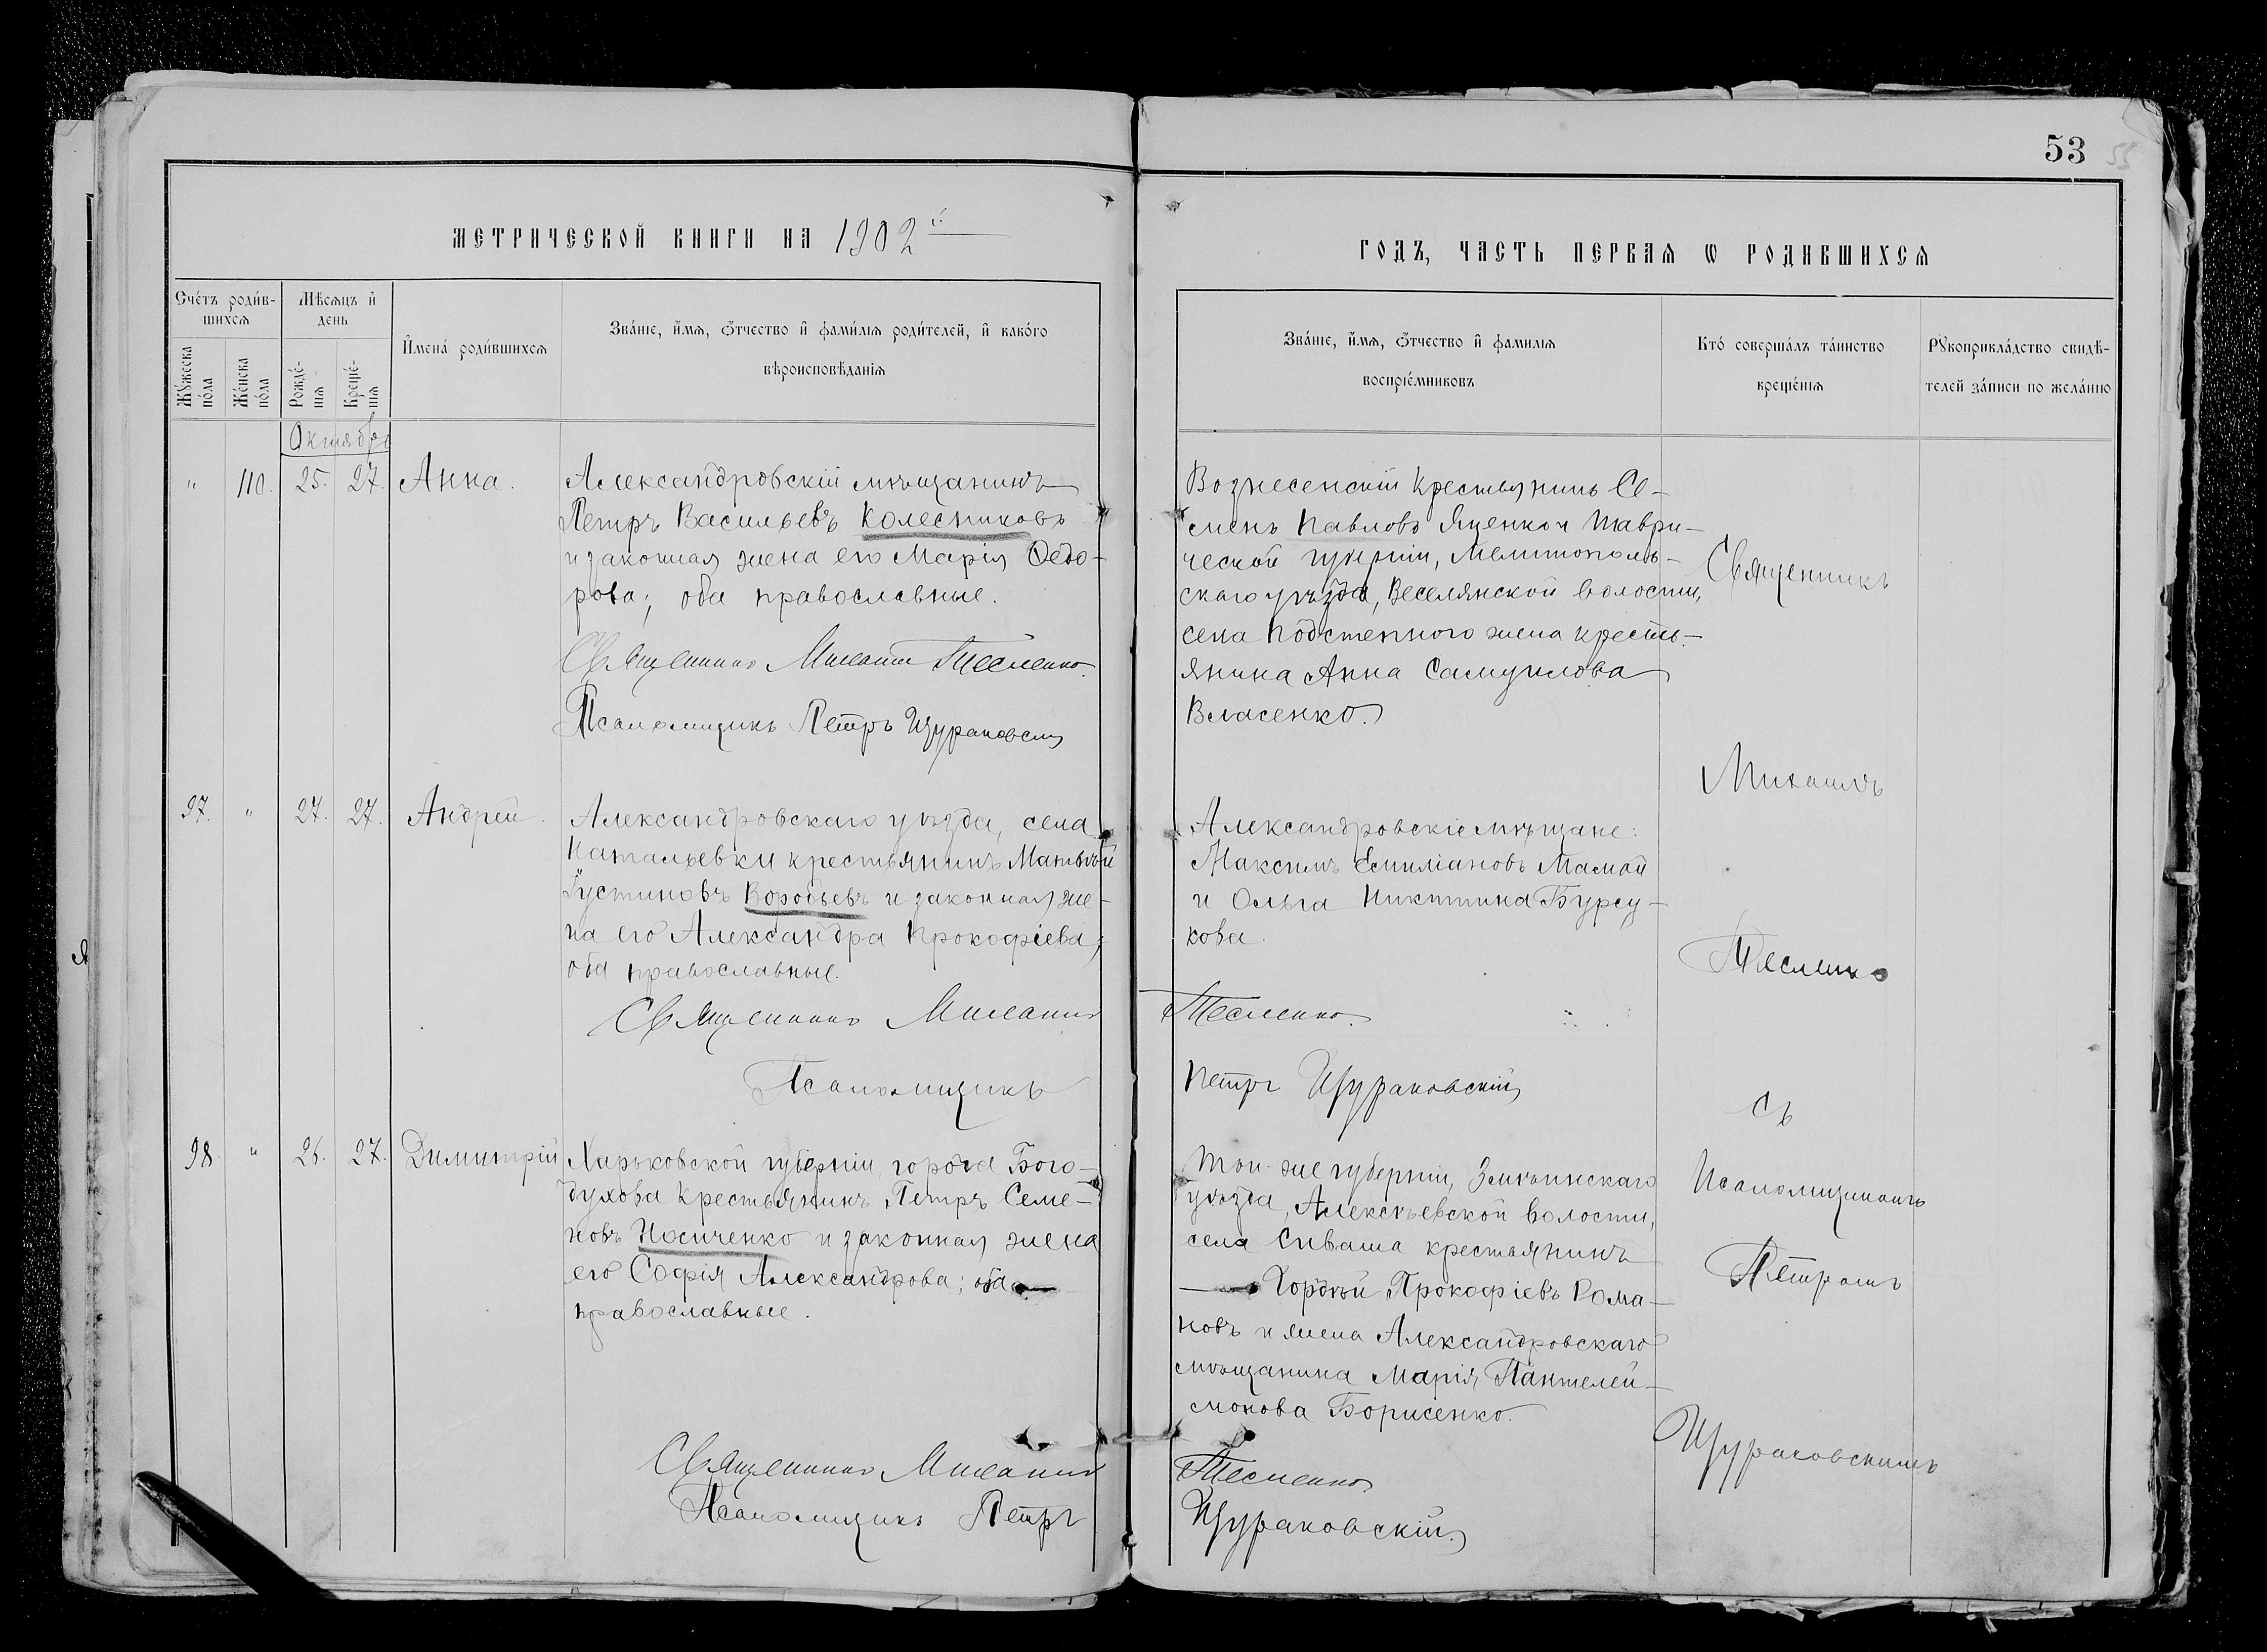 53
МЕТРИЧЕСКОЙ КНИГИ НА 1902й
ГОДЪ, ЧАСТЬ ПЕРВАЯ Ѡ РОДИВШИХСЯ
Счетъ родив-
шихся
Мѣсяцъ и
день
Мужеска
пола
Женска
пола
Рожде-
нія
Креще-
нія
Имена родившихся
Званіе, имя, отчество и фамилія родителей, и какого
вѣроисповѣданія
Званіе, имя, отчество и фамилія
воспріемниковъ
Кто совершалъ таинство
крещенія
Рукоприкладство свидѣ-
телей записи по желанію
Октябрь
" 110. 25. 27. Анна.
Александровскій мѣщанинъ
Петръ Васильевъ Колесниковъ
и законная жена его Марія Ѳедо-
рова; оба православные.
Священникъ Михаилъ Тесленко.
Псаломщикъ Петръ Щураковскій
Вознесенскій крестьянинъ Се-
менъ Павловъ Яценко и Таври-
ческой губерніи, Мелитополь-
скаго уѣзда, Веселянской волости,
села Подстепного жена кресть-
янина Анна Самуилова
Власенко.
97. " 27. 27. Андрей.
Александровскаго уѣзда, села
Натальевки крестьянинъ Матвѣй
Іустиновъ Воробьевъ и законная же-
на его Александра Прокофіева;
оба православные.
Священникъ Михаилъ
Псаломщикъ
Александровскіе мѣщане:
Максимъ Емиліановъ Мамай
и Ольга Никитина Бурсу-
кова.
Тесленко.
Петръ Щураковскій
98. " 26. 27. Димитрій
Харьковской губерніи, города Бого-
духова крестьянинъ Петръ Семе-
новъ Носиченко и законная жена
его Софія Александрова; оба
православные.
Священникъ Михаилъ
Псаломщикъ Петръ
Той-же губерніи, Зміинскаго
уѣзда, Алексѣевской волости,
села Сиваша крестьянинъ
Гордѣй Прокофіевъ Рома-
новъ и жена Александровскаго
мѣщанина Марія Пантелей-
монова Борисенко.
Тесленко
Щураковскій.
Священникъ
Михаилъ
Тесленко
съ
Псаломщикомъ
Петромъ
Щураковскимъ